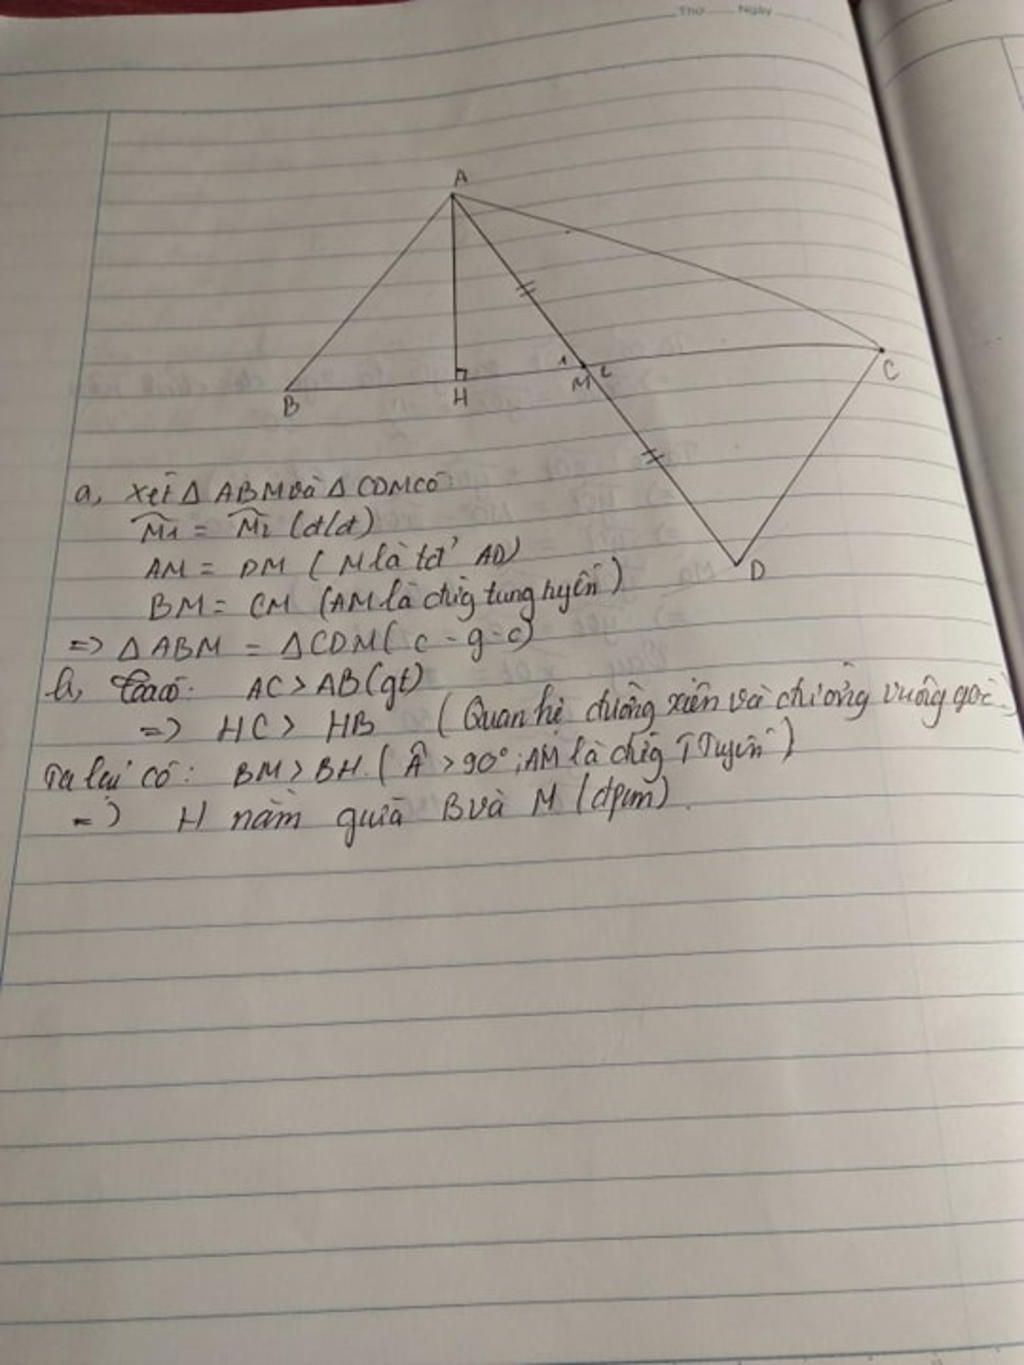 Thứ Ngày
A
B
H
1
M
2
C
D
a, Xét Δ ABM và Δ CDM có
M1 = M2 (đ/đ)
AM = DM ( M là tđ' AD)
BM = CM (AM là đường tung tuyến)
=> Δ ABM = Δ CDM ( c - g - c)
b, Ta có: AC > AB (gt)
=> HC > HB (Quan hệ đường xiên và chiếu vuông góc)
Ta lại có: BM > BH. ( Â > 90°; AM là đường T Tuyến)
=> H nằm giữa B và M (đpcm).